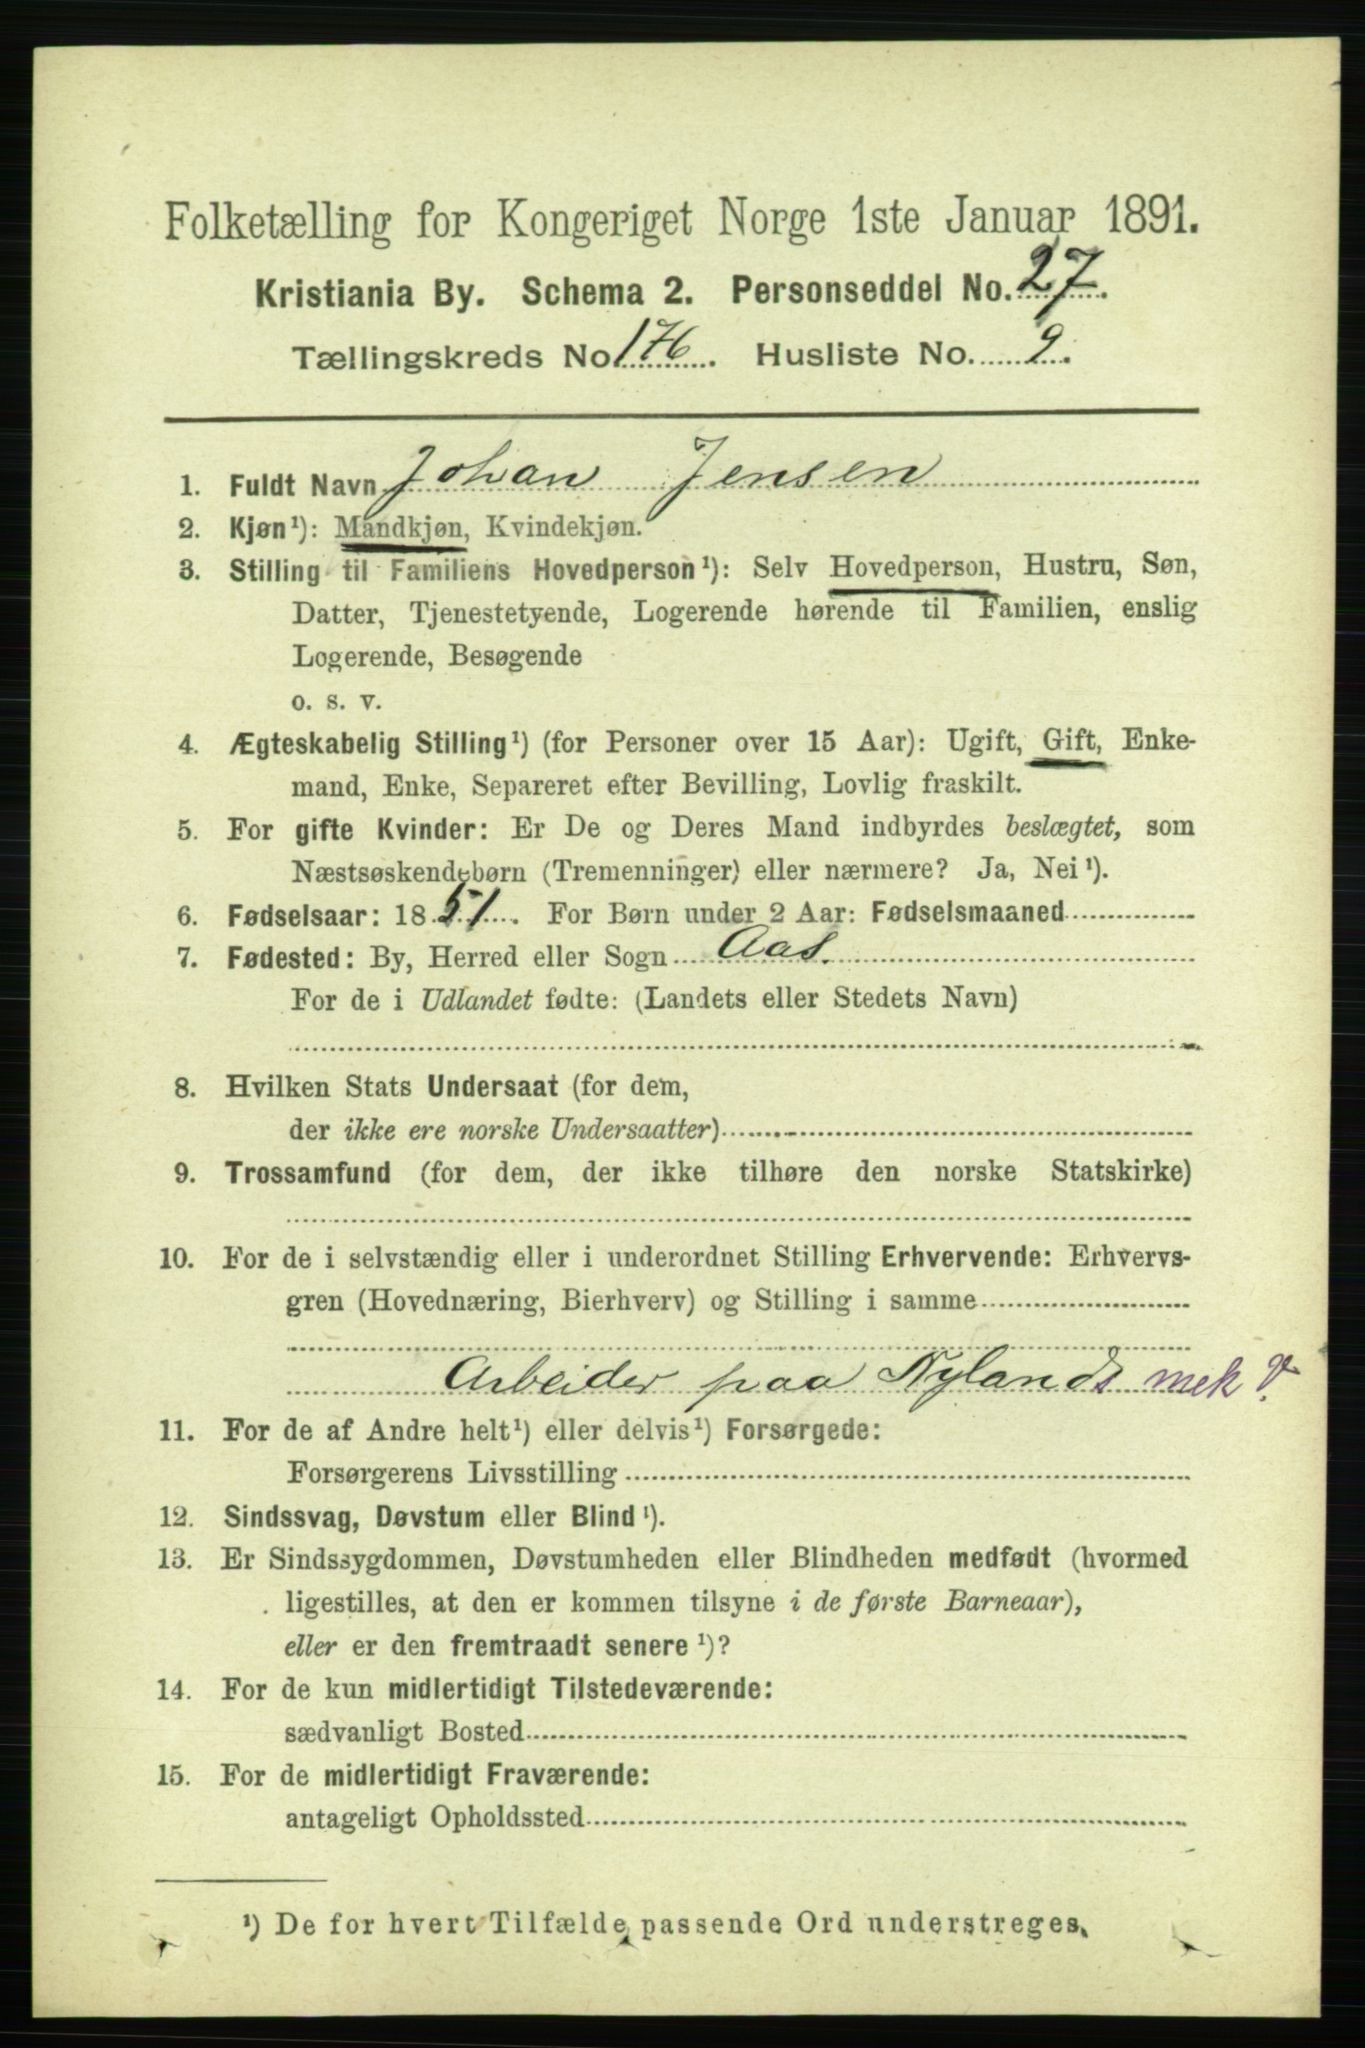 Folketælling for Kongeriget Norge 1ste Januar 1891.
Kristiania By. Schema 2. Personseddel No. 27.
Tællingskreds No. 176. Husliste No. 9.
1. Fuldt Navn Johan Jensen
2. Kjøn¹): Mandkjøn, Kvindekjøn.
3. Stilling til Familiens Hovedperson¹): Selv Hovedperson, Hustru, Søn,
Datter, Tjenestetyende, Logerende hørende til Familien, enslig
Logerende, Besøgende
o. s. v.
4. Ægteskabelig Stilling¹) (for Personer over 15 Aar): Ugift, Gift, Enke-
mand, Enke, Separeret efter Bevilling, Lovlig fraskilt.
5. For gifte Kvinder: Er De og Deres Mand indbyrdes beslægtet, som
Næstsøskendebørn (Tremenninger) eller nærmere? Ja, Nei¹).
6. Fødselsaar: 1851. For Børn under 2 Aar: Fødselsmaaned
7. Fødested: By, Herred eller Sogn Aas.
For de i Udlandet fødte: (Landets eller Stedets Navn)
8. Hvilken Stats Undersaat (for dem,
der ikke ere norske Undersaatter)
9. Trossamfund (for dem, der ikke tilhøre den norske Statskirke)
10. For de i selvstændig eller i underordnet Stilling Erhvervende: Erhvervs-
gren (Hovednæring, Bierhverv) og Stilling i samme
Arbeider paa Nylands mek V.
11. For de af Andre helt¹) eller delvis¹) Forsørgede:
Forsørgerens Livsstilling
12. Sindssvag, Døvstum eller Blind¹).
13. Er Sindssygdommen, Døvstumheden eller Blindheden medfødt (hvormed
ligestilles, at den er kommen tilsyne i de første Barneaar),
eller er den fremtraadt senere¹)?
14. For de kun midlertidigt Tilstedeværende:
sædvanligt Bosted
15. For de midlertidigt Fraværende:
antageligt Opholdssted
¹) De for hvert Tilfælde passende Ord understreges.